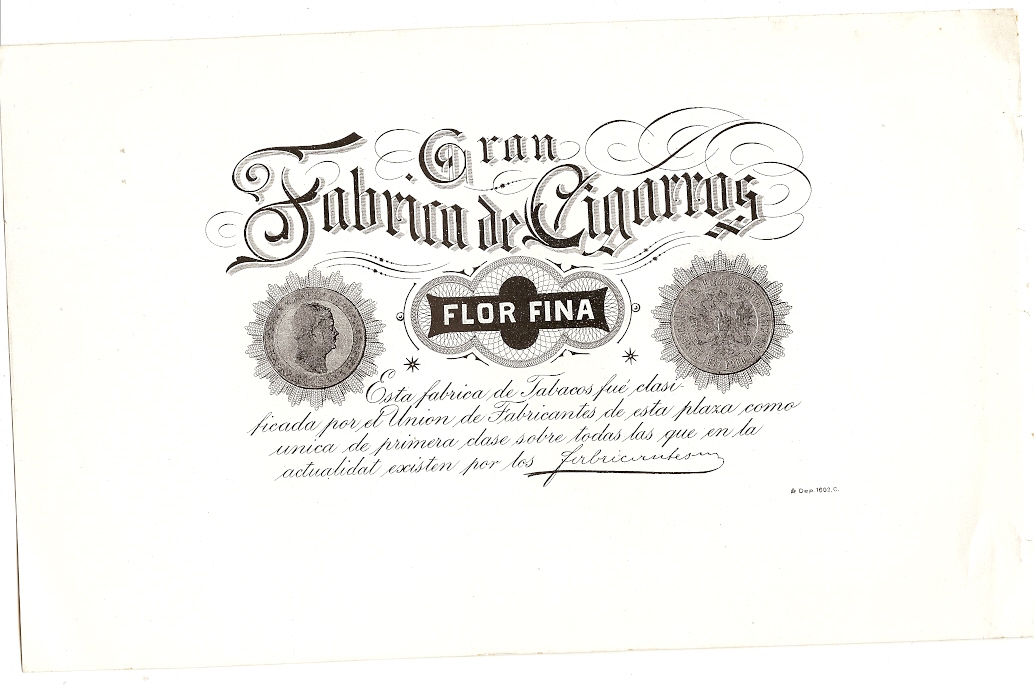 Gran
Fabrica de Cigarros
FLOR FINA
Esta fabrica de Tabacos fué clasi-
ficada por el Union de Fabricantes de esta plaza como
unica de primera clase sobre todas las que en la
actualidat existen por los fabricantes
Dep. 1602. C.